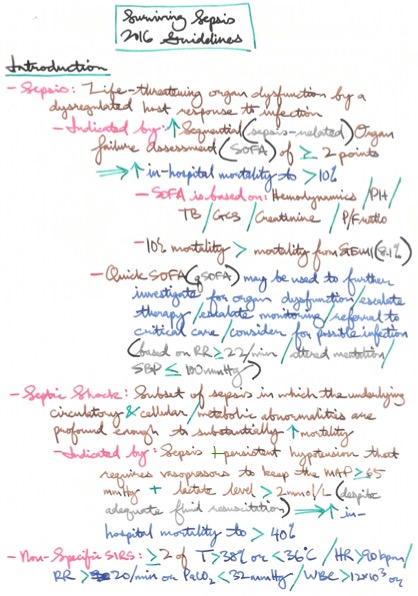 Surviving Sepsis
2016 Guidelines
Introduction
- Sepsis: Life-threatening organ dysfunction by a
dysregulated host response to infection
- Indicated by: ↑ Sequential (sepsis-related) Organ
failure assessment (SOFA) of ≥ 2 points
⇒ ↑ in-hospital mortality to >10%
- SOFA is based on: Hemodynamics / PH /
TB / GCS / Creatinine / P/F ratio
- 10% mortality > mortality from STEMI (8.1%)
- Quick SOFA (qSOFA) may be used to further
investigate for organ dysfunction / escalate
therapy / escalate monitoring / referral to
critical care / consider for possible infection
(based on RR ≥ 22/min / altered mentation /
SBP ≤ 100mmHg)
- Septic Shock: Subset of sepsis in which the underlying
circulatory & cellular / metabolic abnormalities are
profound enough to substantially ↑ mortality
- Indicated by: Sepsis + persistent hypotension that
requires vasopressors to keep the MAP ≥ 65
mmHg + lactate level > 2mmol/L (despite
adequate fluid resuscitation) ⇒ ↑ in-
hospital mortality to > 40%
- Non-Specific SIRS: ≥ 2 of T > 38% or < 36°C / HR > 90bpm /
RR > 20/min or PaCO2 < 32mmHg / WBC > 12x10³ or